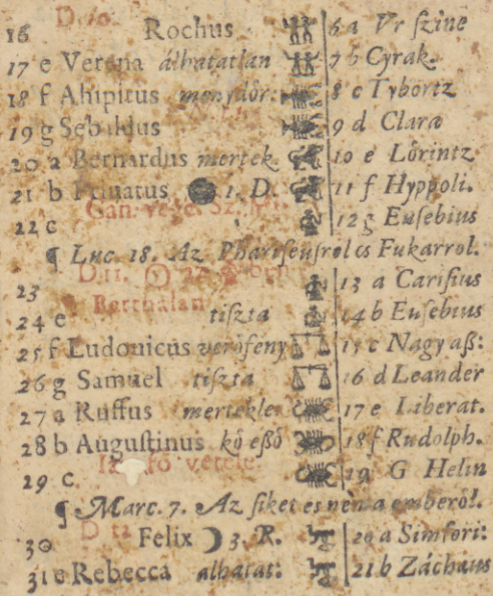 D. 10.
16 Rochus 6 a Vr ſzine
17 e Verena álhatatlan 7 b Cyrak.
18 f Ahipitus menydör: 8 c Tybortz
19 g Sebaldus 9 d Clara
20 a Bernardus mertek 10 e Lörintz
21 b Priuatus 1. D. 11 f Hyppoli.
22 c 12 g Euſebius
¶ Luc. 18. Az Phariſeuſrol es Fukarrol.
D. 11.
23 13 a Cariſius
24 e tiſzta 14 b Euſebius
25 f Ludouicus veröfény 15 c Nagy aß:
26 g Samuel tiſzta 16 d Leander
27 a Ruffus mertekle 17 e Liberat.
28 b Auguſtinus kö eßö 18 f Rudolph.
fö vetele
29 c 19 G Helin
¶ Marc. 7. Az ſiket es nèma emberöl.
D 12
30 Felix ☽ 3. R. 20 a Simfori:
31 e Rebecca alhatat: 21 b Záchaus